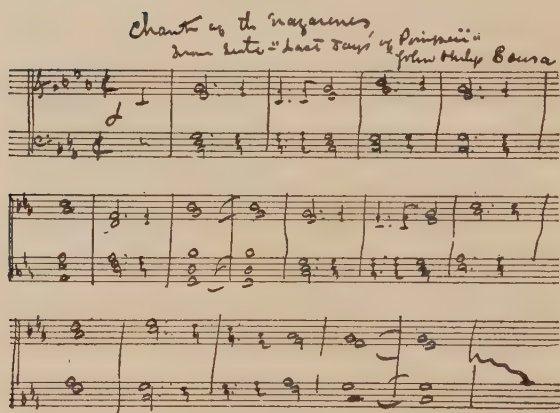 Chant of the Nazarenes
From Suite "Last Days of Pompeii"
John Philip Sousa